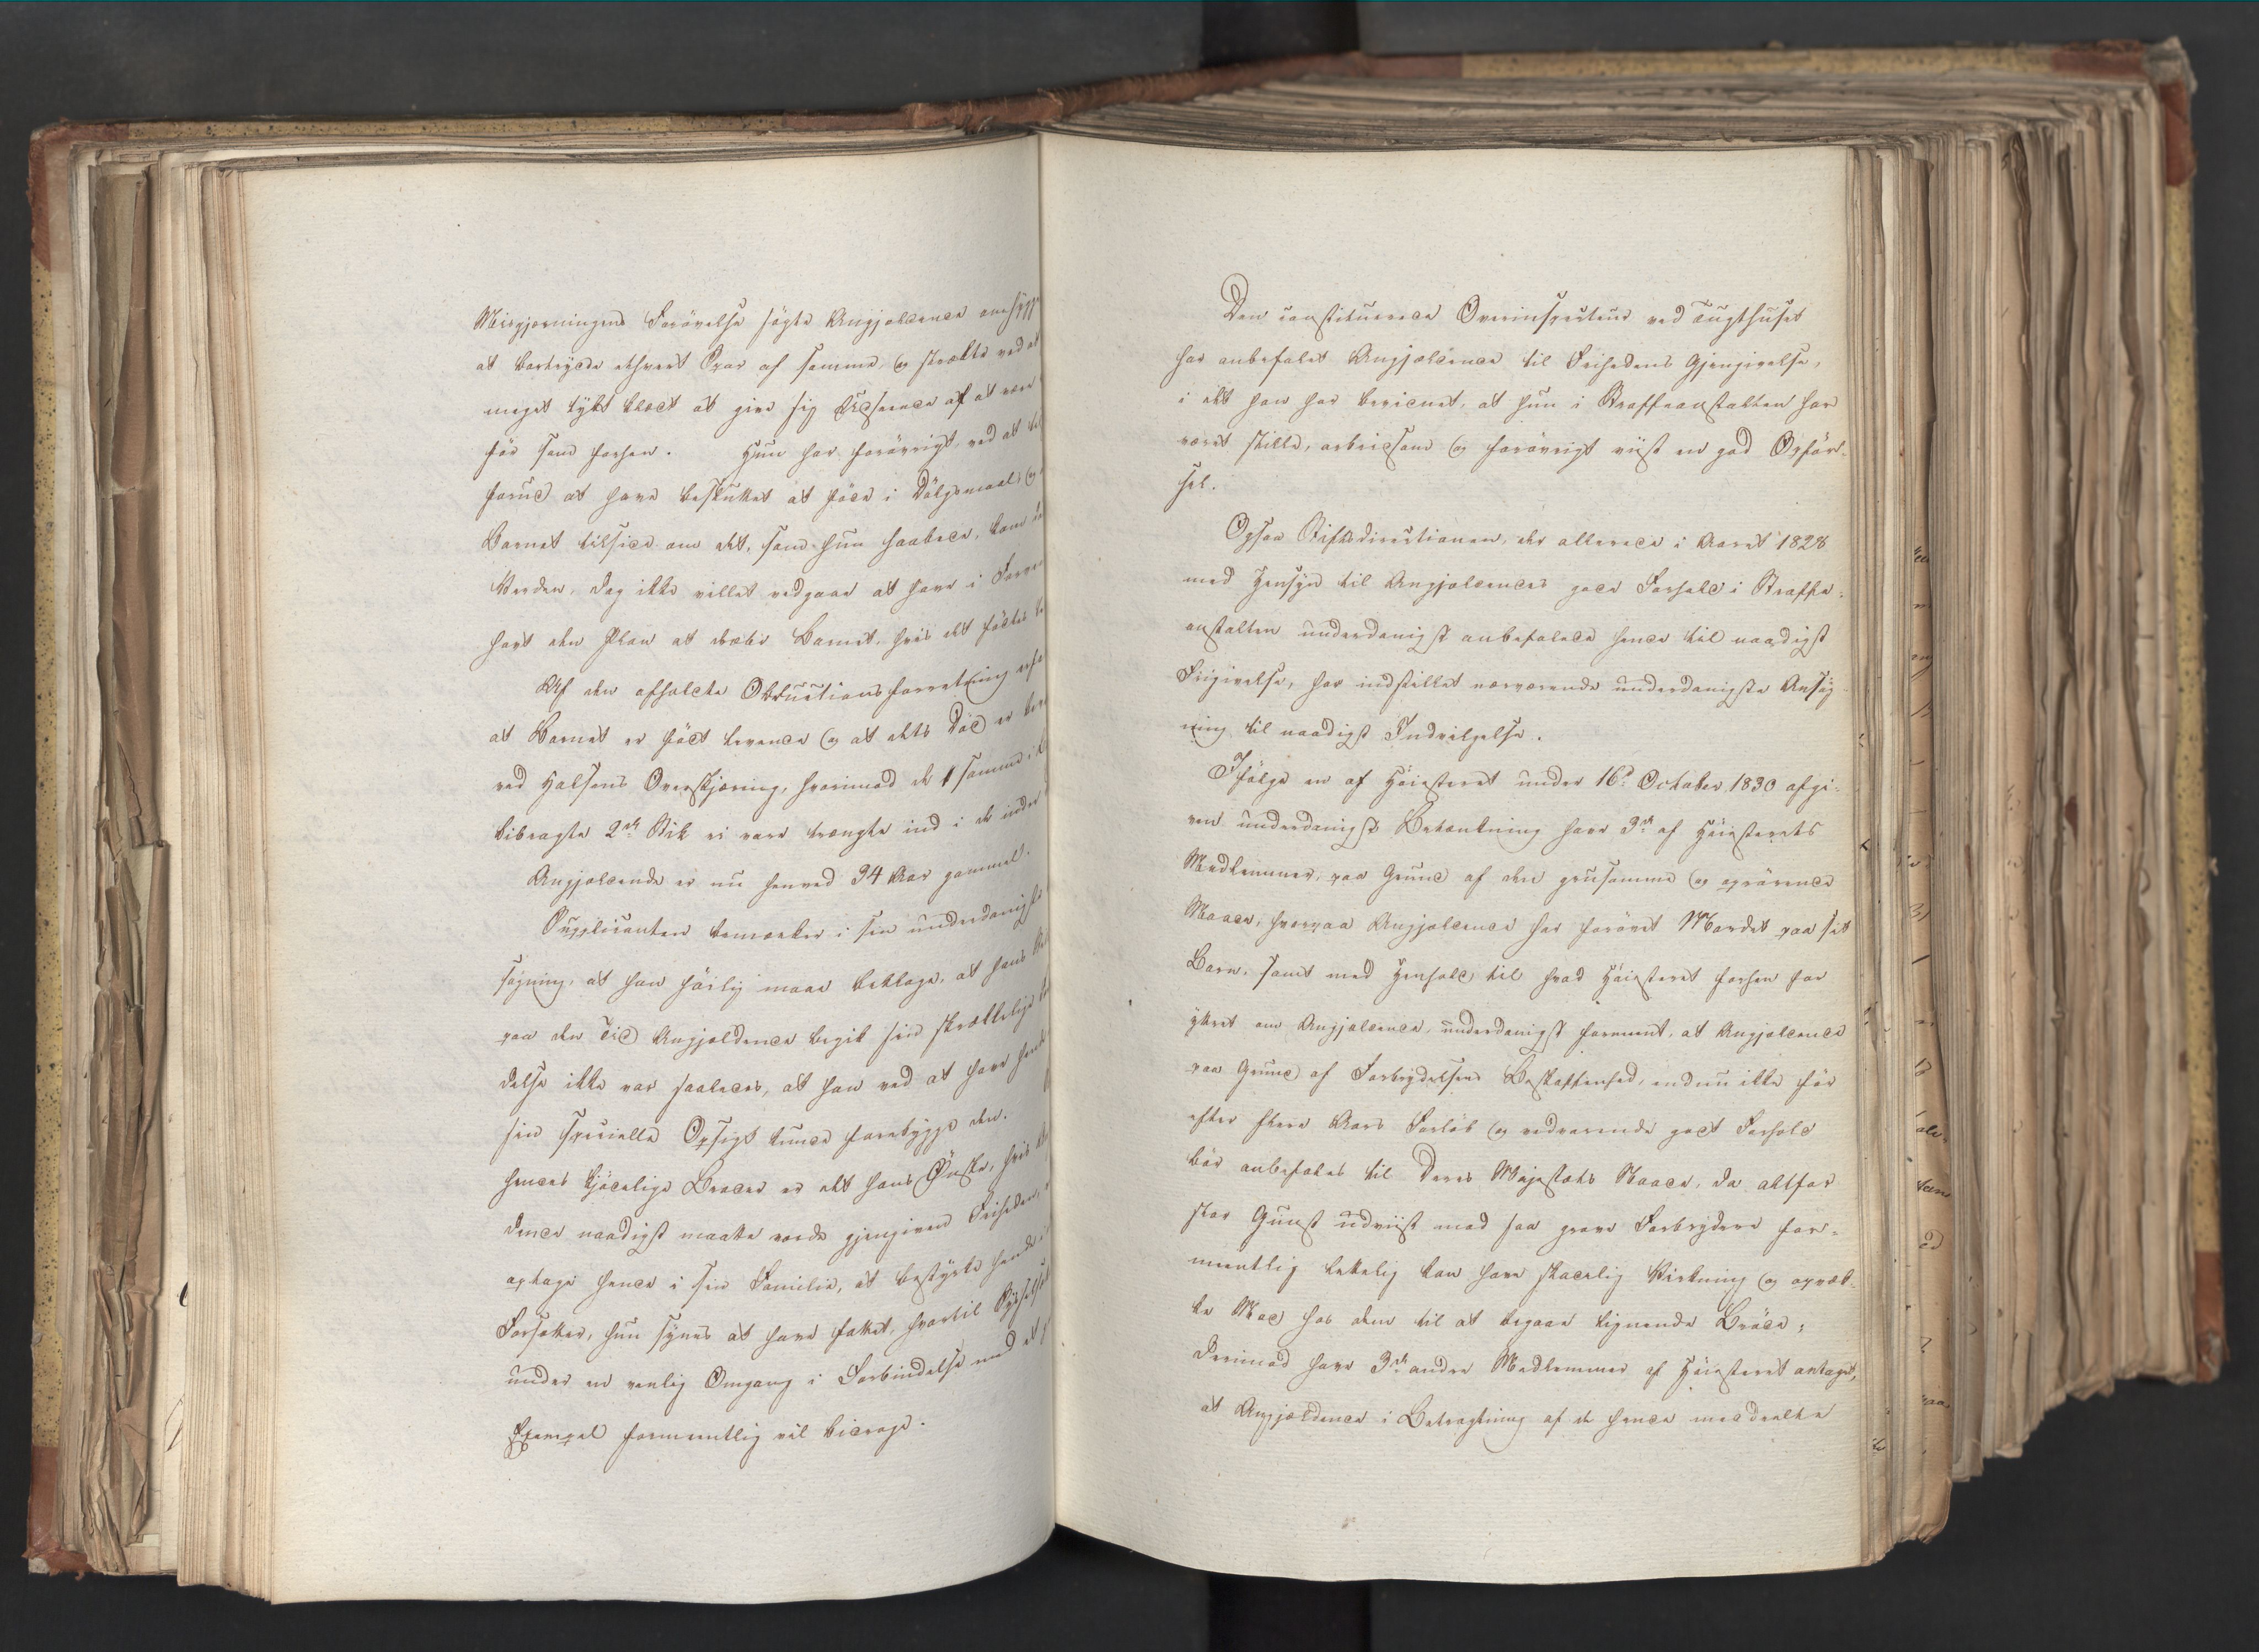 Misgjerningens Forøvelse søgte Angjældende omhygge
at bortrydde ethvert Spor af samme og stræbte ved at
meget tykt klædt at give sig Udseende af at være
før som forhen. Hun har forøvrigt, ved at til
forud at have besluttet at føde i Dølgsmaal, og
Barnet tilside om det, som hun haabede, kom
Verden, dog ikke villet vedgaae at have i Forve
havt den Plan at dræbe Barnet, hvis det fødtes
Af den afholdte Obductionsforretning erfa
at Barnet er født levende og at dets Død er
ved Halsens Overskjæring, hvorimod de samme
bibragte 2de Stik ei vare trængte ind i de indre
Angjældende er nu henved 34 Aar gammel.
Supplicanten bemærker i sin underdanigste
søgning, at han høilig maae beklage, at hans
paa den Tid Angjældende begik sin skrækkelige
delse ikke var saaledes, at han ved at have havt
sin specielle Opsigt kunde forebygge den.
hendes kjødelige Broder er det hans Ønske, hvis
dende naadigst maatte vorde gjengiven Friheden,
optage hende i sin Familie, at bestyrke hende i
Forsætter, hun synes at have fattet, hvortil Sysselsæt
under en venlig Omgang i Forbindelse med et g
Exempel formeentlig vil bidrage.
Den constituerede Overinspecteur ved Tugthuset
har anbefalet Angjældende til Frihedens Gjengivelse,
i det han har bevidnet, at hun i Straffeanstalten har
været stille, arbeidsom og forøvrigt viist en god Opfør-
sel.
Ogsaa Stiftsdirectionen, der allerede i Aaret 1828
med Hensyn til Angjældendes gode Forhold i Straffe-
anstalten underdanigst anbefalede hende til naadigst
Frigivelse, har indstillet nærværende underdanigste Ansøg
ning til naadigst Indvilgelse.
Ifølge en af Høiesteret under 16de October 1830 afgi-
ven underdanigst Betænkning have 3de af Høiesterets
Medlemmer, paa Grund af den grusomme og oprørende
Maade, hvorpaa Angjældende har forøvet Mordet paa sit
Barn, samt med Henhold til hvad Høiesteret forhen har
yttret om Angjældende, underdanigst formeent, at Angjældende
paa Grund af Forbrydelsens Beskaffenhed, endnu ikke før
efter flere Aars Forløb og vedvarende godt Forhold
bør anbefales til Deres Majestæts Naade, da altfor
stor Gunst udviist mod saa grove Forbrydere for-
meentlig lettelig kan have skadelig Virkning og opvæk-
ke Mod hos dem til at begaae lignende Brøde;
Derimod have 3de andre Medlemmer af Høiesteret antaget,
at Angjældende i Betragtning af de hende meddeelte